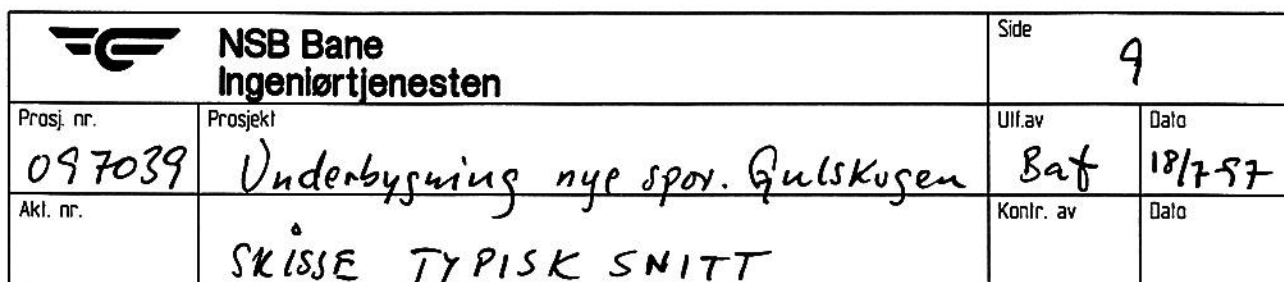 NSB Bane
Ingeniørtjenesten
Side
9
Prosj. nr.
097039
Prosjekt
Underbygning nye spor. Gulskogen
Utf.av
Baf
Dato
18/7-97
Akt. nr.
SKISSE TYPISK SNITT
Kontr. av
Dato